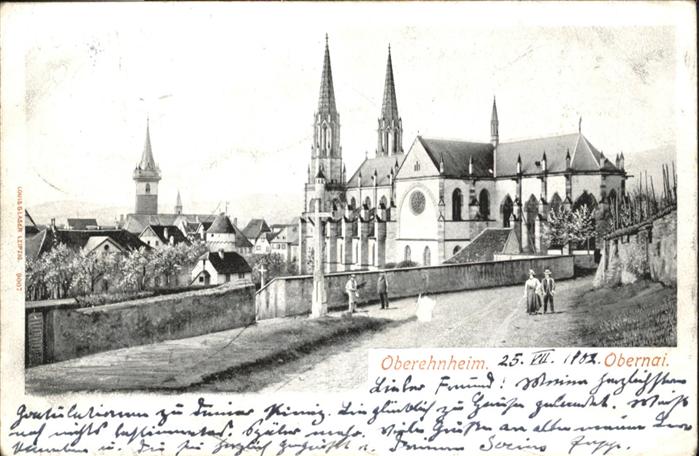 LOUIS GLASER LEIPZIG. 9007
Oberehnheim. 25. VII. 1902. Obernai.
Lieber Freund! Meine herzlichsten
Gratulationen zu Deiner Bin glücklich zu Hause gelandet. Weiß
noch nichts bestimmtes. Später mehr. Viele Grüße an alle meine
u. Du sei herzlich gegrüßt v. Deinem